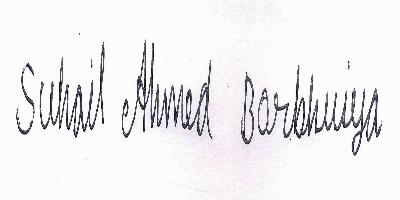 Suhail Ahmed Barbhuiya